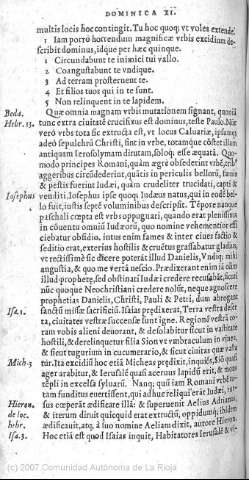 DOMINICA XI.
multis locis hoc contingit. Tu hoc quoq; vt voles extende.
1 Iam porrò horrendum magnificæ vrbis excidium de-
scribit dominus, idque per hæc quinque.
1 Circundabunt te inimici tui vallo.
2 Coangustabunt te vndique.
3 Ad terram prosternent te.
4 Et filios tuos qui in te sunt.
5 Non relinquent in te lapidem.
Que omnia magnam vrbis mutationem signant, quoniã
Beda.
Hebr. 13.
tunc extra ciuitatẽ crucifixus est dominus, teste Paulo. Nũc
verò vrbs tota sic extructa est, vt locus Caluariæ, ipsumq;
adeò sepulchrũ Christi, sint in vrbe, totamque cõstet illam
antiquam Ierosolymam dirutam, soloq; esse æquatã. Quo-
modo principes Romani, quàm ægrè obsederint vrbẽ,
aggeribus circũdederint, quàtis in periculis bellorũ, famis
& pestis fuerint Iudæi, quàm crudeliter trucidati, capti &
Iosephus
venditi Iosephus ipse quoq; Iudæus natus, qui in eodẽ bel-
lo fuit, iustis septẽ voluminibus descripsit. Tẽpore nanque
paschali cœpta est vrbs oppugnari, quando erat plenissima
in cõuentu omniũ Iudæorũ, quo nomine vehementior est
ciebatur obsidio, intus enim fames & inter ciues factio &
seditio erat, exterius hostilis & cruẽtus grassabatur gladius,
vt rectissimè sic dicere poterat illud Danielis, Vndiq; mihi
angustia, & quo me vertã nescio. Prædixerant enim id olim
illud prophetę, sed obstinati Iudæi credere recusabãt, sicuti
nũc quoque Neochristiani credere nolũt, neque agnoscere
prophetias Danielis, Christi, Pauli & Petri, dum abrogant
Isa. 1.
sanctũ missæ sacrificiũ. Isaias prædixerat, Terra vestra deser
ta, ciuitates vestræ succensæ sunt igne. Regionẽ vestrã co-
ram vobis alieni deuorant, & desolabitur sicut in vastitate
hostili, & derelinquetur filia Sion vt vmbraculum in vinea,
& sicut tugurium in cucumerario, & sicut ciuitas quæ vasta
Mich. 3
tur. Ita excidiũ hoc etiã Micheas prędixit, inquiẽs, Siõ quasi
ager arabitur, & Ierusalẽ quasi aceruus lapidũ erit, & mons
tẽpli in excelsa syluarũ. Nanq; quũ iam Romani vrbẽ
tam funditus euertissent, qui adhuc reliqui erãt Iudæi,
Hieron.
sus cœperãt ædificare illã: & superuenit Aelius Adrianus
de loc.
& iterum diruit quicquid erat extructũ, oppidumq; ibidem
hebr.
ædificauit, atq; à suo nomine Aeliam dixit, autore Hieron.
Isa. 3.
Hoc etiã est quod Isaias inquit, Habitatores Ierusalẽ &
(c) 2007 Comunidad Autónoma de La Rioja